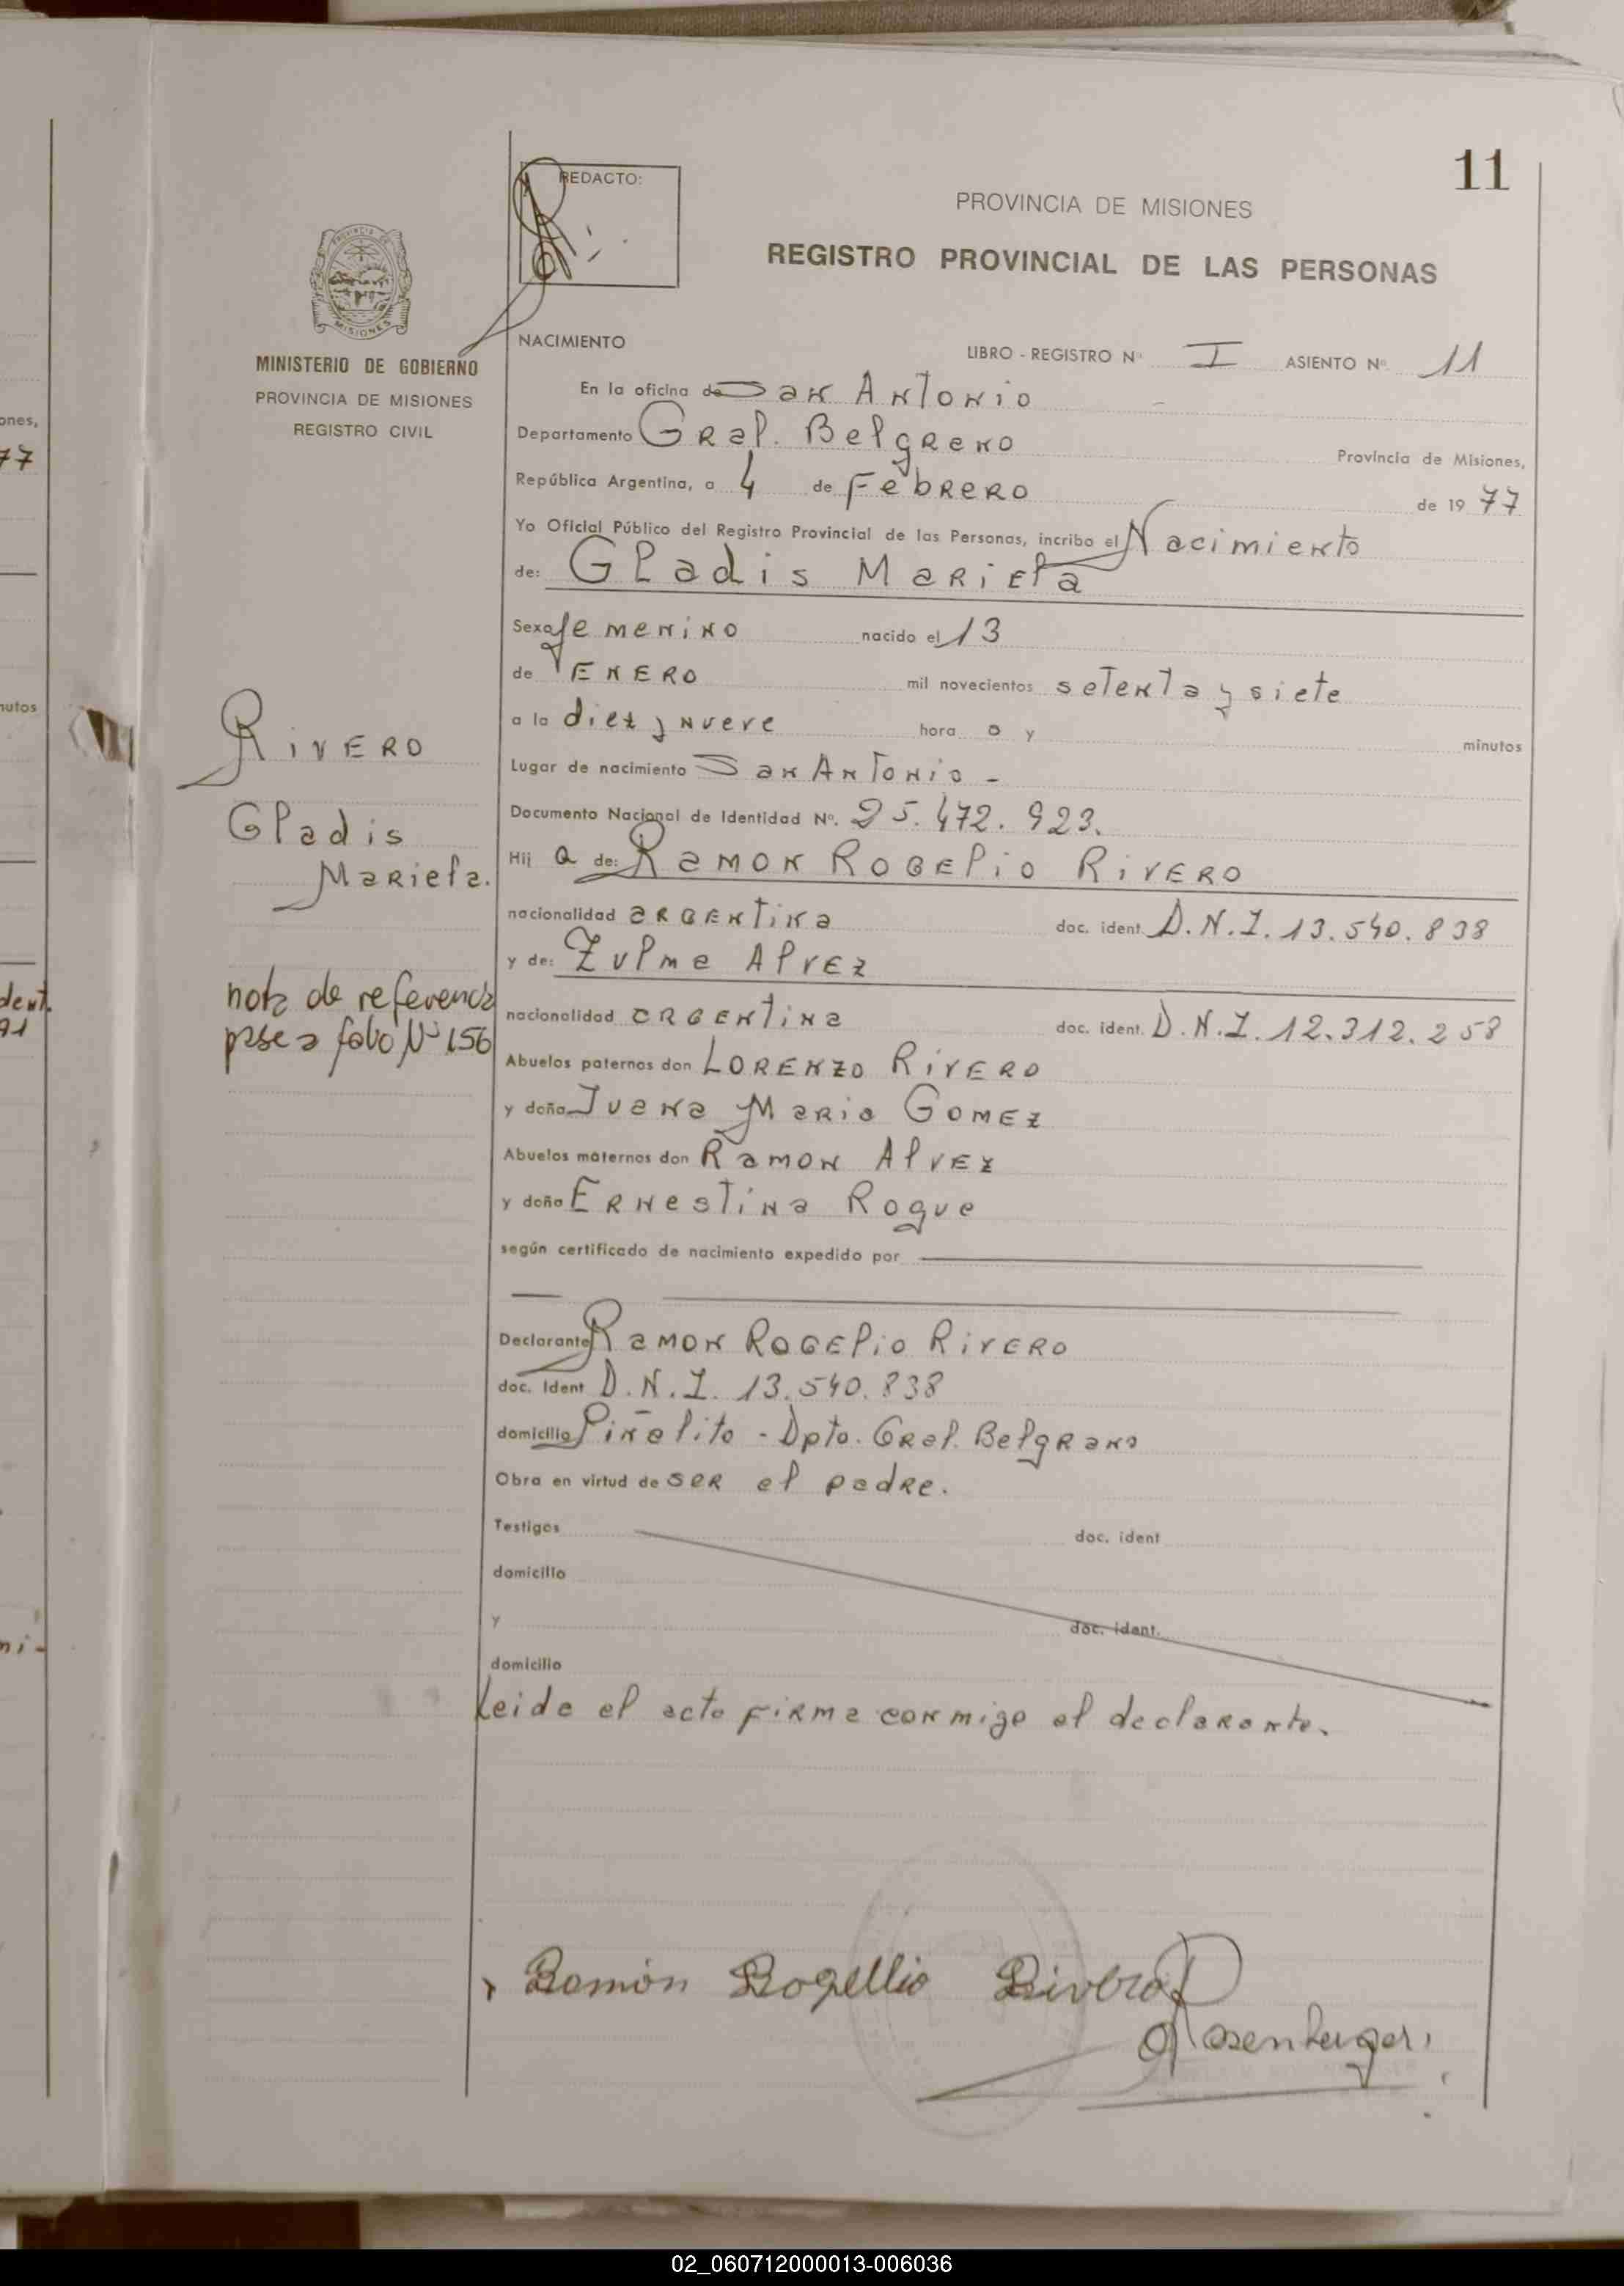 11
REDACTO:
PROVINCIA DE MISIONES
REGISTRO PROVINCIAL DE LAS PERSONAS
PROVINCIA DE
MISIONES
MINISTERIO DE GOBIERNO
PROVINCIA DE MISIONES
REGISTRO CIVIL
NACIMIENTO
LIBRO - REGISTRO Nº I ASIENTO Nº 11
En la oficina de San Antonio
Departamento Gral. Belgrano Provincia de Misiones,
República Argentina, a 4 de Febrero de 1977
Yo Oficial Público del Registro Provincial de las Personas, incribo el Nacimiento
de: Gladis Mariela
Sexo femenino nacido el 13
de ENERO mil novecientos setenta y siete
a la diez y nueve hora o y minutos
Lugar de nacimiento San Antonio -
Documento Nacional de Identidad Nº. 25.472.923.
Hij a de: Ramon Rogelio Rivero
nacionalidad argentina doc. ident. D.N.I. 13.540.838
y de: Zulma Alvez
nacionalidad argentina doc. ident. D.N.I. 12.312.258
Abuelos paternos don Lorenzo Rivero
y doña Juana Maria Gomez
Abuelos maternos don Ramon Alvez
y doña Ernestina Roque
según certificado de nacimiento expedido por
Declarante Ramon Rogelio Rivero
doc. Ident D.N.I. 13.540.838
domicilio Piñalito - Dpto. Gral. Belgrano
Obra en virtud de ser el padre.
Testigos doc. ident
domicilio
y doc. ident.
domicilio
Leida el acta firma conmigo el declarante.
Rivero
Gladis
Mariela.
nota de referencia
pase a folio Nº 156
Ramón Rogellio Rivero
ones,
77
nutos
dent.
91
ni-
02_060712000013-006036